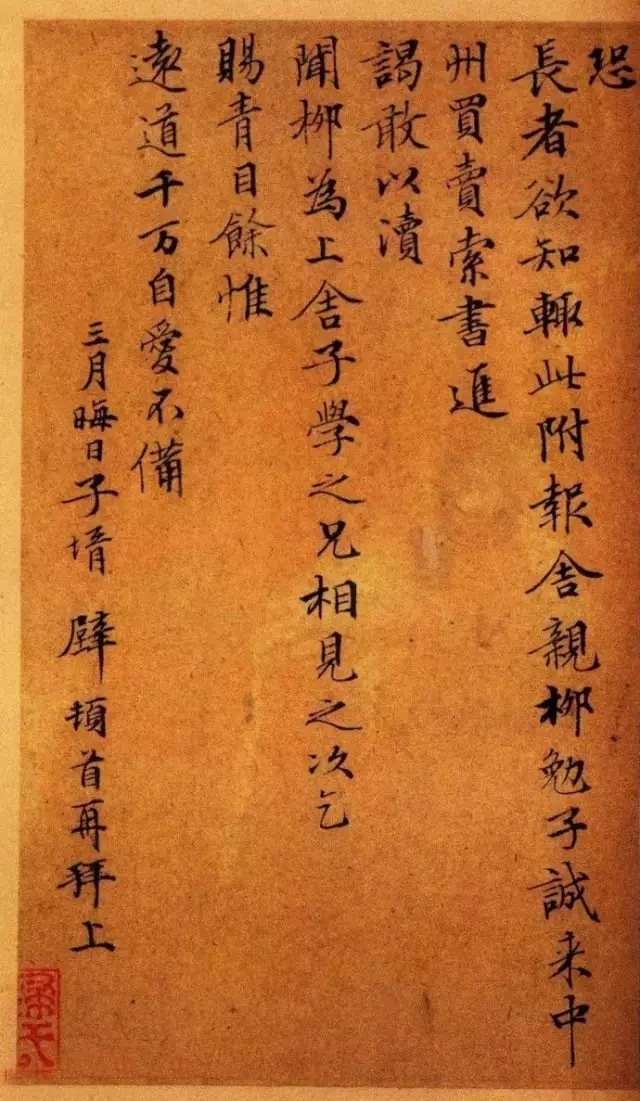 恐
長者欲知輙此附報舍親柳勉子誠来中
州買賣索書進
謁敢以瀆
聞柳為上舍子學之兄相見之次乞
賜青目餘惟
遠道千万自愛不備
三月晦日子壻 璧 頓首再拜上